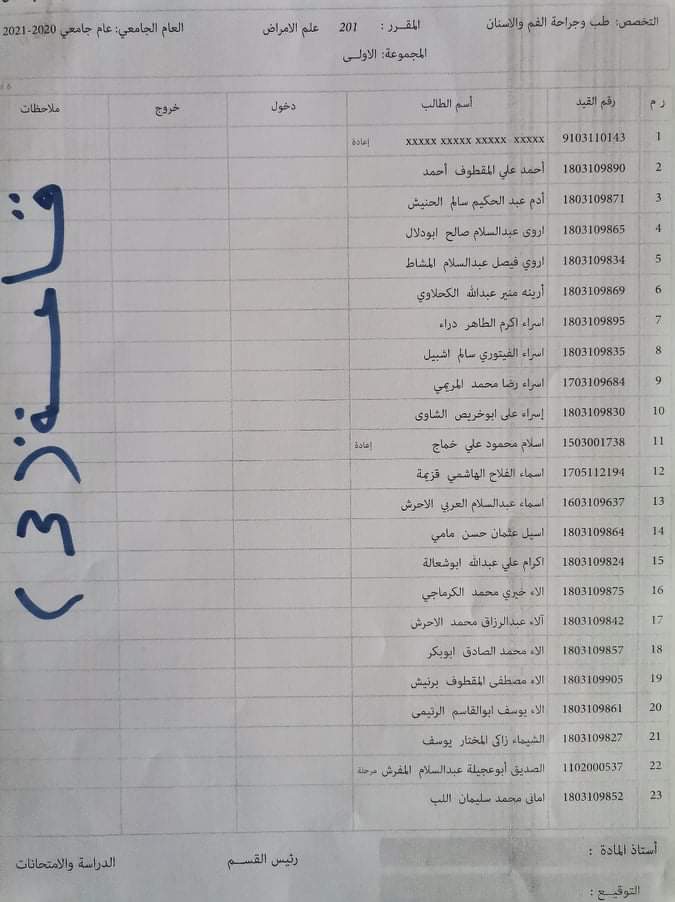 التخصص: طب وجراحة الفم والاسنان المقرر : 201 علم الامراض العام الجامعي: عام جامعي 2020-2021
المجموعة: الاولى
ر م رقم القيد أسم الطالب دخول خروج ملاحظات
1 9103110143 xxxxx xxxxx xxxxx xxxxx إعادة
2 1803109890 أحمد علي المقطوف أحمد
3 1803109871 أدم عبد الحكيم سالم الحنيش
4 1803109865 اروى عبدالسلام صالح ابودلال
5 1803109834 اروي فيصل عبدالسلام المشاط
6 1803109869 أرينه منير عبدالله الكحلاوي
7 1803109895 اسراء اكرم الطاهر دراء
8 1803109835 اسراء الفيتوري سالم اشبيل
9 1703109684 اسراء رضا محمد المريمي
10 1803109830 إسراء على ابوخريص الشاوى
11 1503001738 اسلام محمود علي خماج إعادة
12 1705112194 اسماء الفلاح الهاشمي قزيمة
13 1603109637 اسماء عبدالسلام العربي الاحرش
14 1803109864 اسيل عثمان حسن مامي
15 1803109824 اكرام علي عبدالله ابوشعالة
16 1803109875 الاء خيري محمد الكرماجي
17 1803109842 آلاء عبدالرزاق محمد الاحرش
18 1803109857 الاء محمد الصادق ابوبكر
19 1803109905 الاء مصطفى المقطوف برنيش
20 1803109861 الاء يوسف ابوالقاسم الرتيمى
21 1803109827 الشيماء زاكى المختار يوسف
22 1102000537 الصديق أبوعجيلة عبدالسلام المفرش مرحلة
23 1803109852 امانى محمد سليمان اللب
قاعة (3)
أستاذ المادة : رئيس القسم الدراسة والامتحانات
التوقيع :